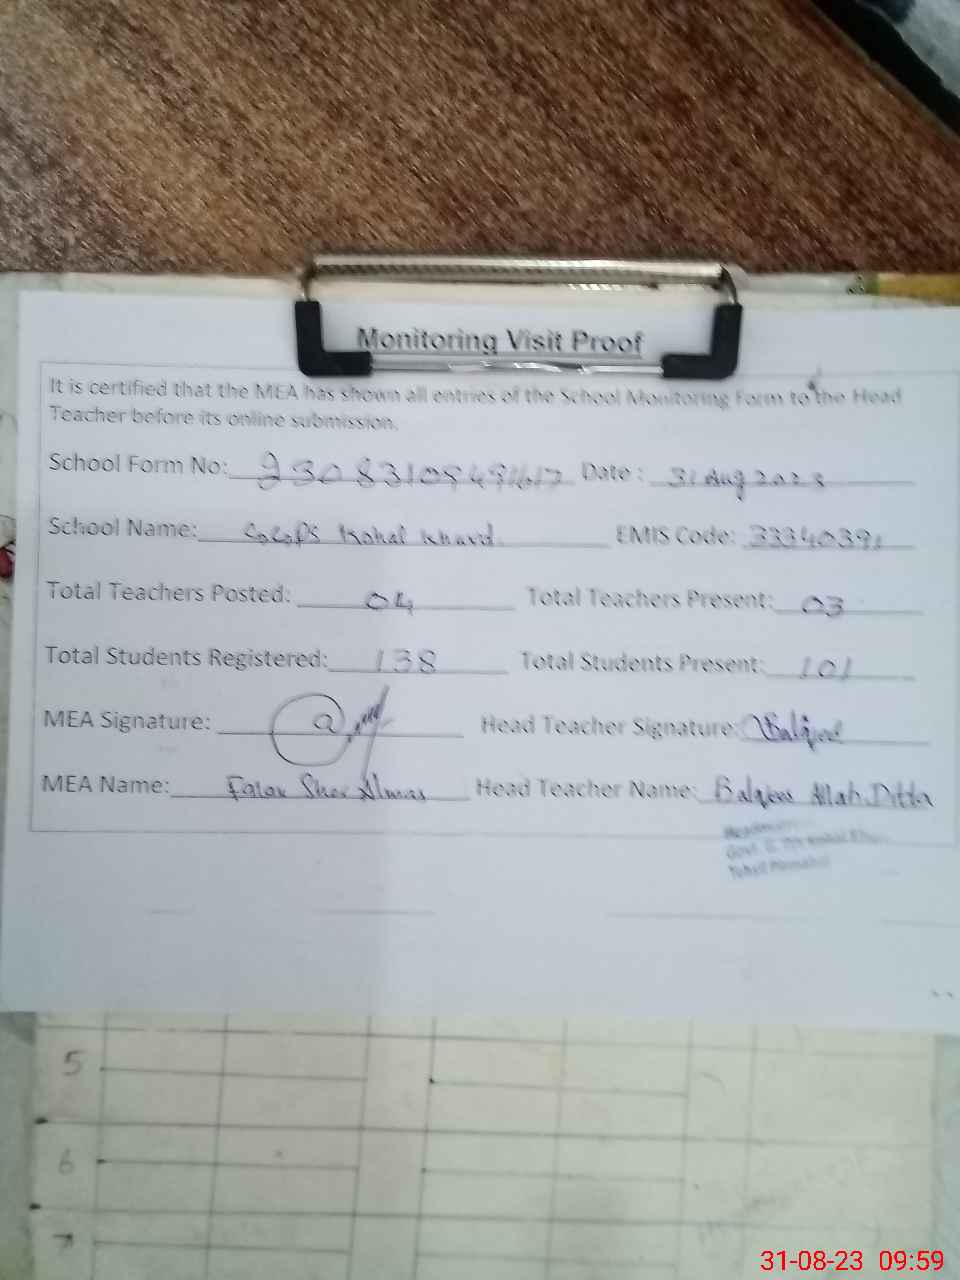 Monitoring Visit Proof
It is certified that the MEA has shown all entries of the School Monitoring Form to the Head
Teacher before its online submission.
School Form No: Date: 31 Aug 2023
School Name: Kohal Khurd. EMIS Code: 33340391
Total Teachers Posted: 04 Total Teachers Present: 03
Total Students Registered: 138 Total Students Present: 101
MEA Signature: Head Teacher Signature:
MEA Name: Falak Sher Almas Head Teacher Name: Allah Ditta
5
6
7
31-08-23 09:59